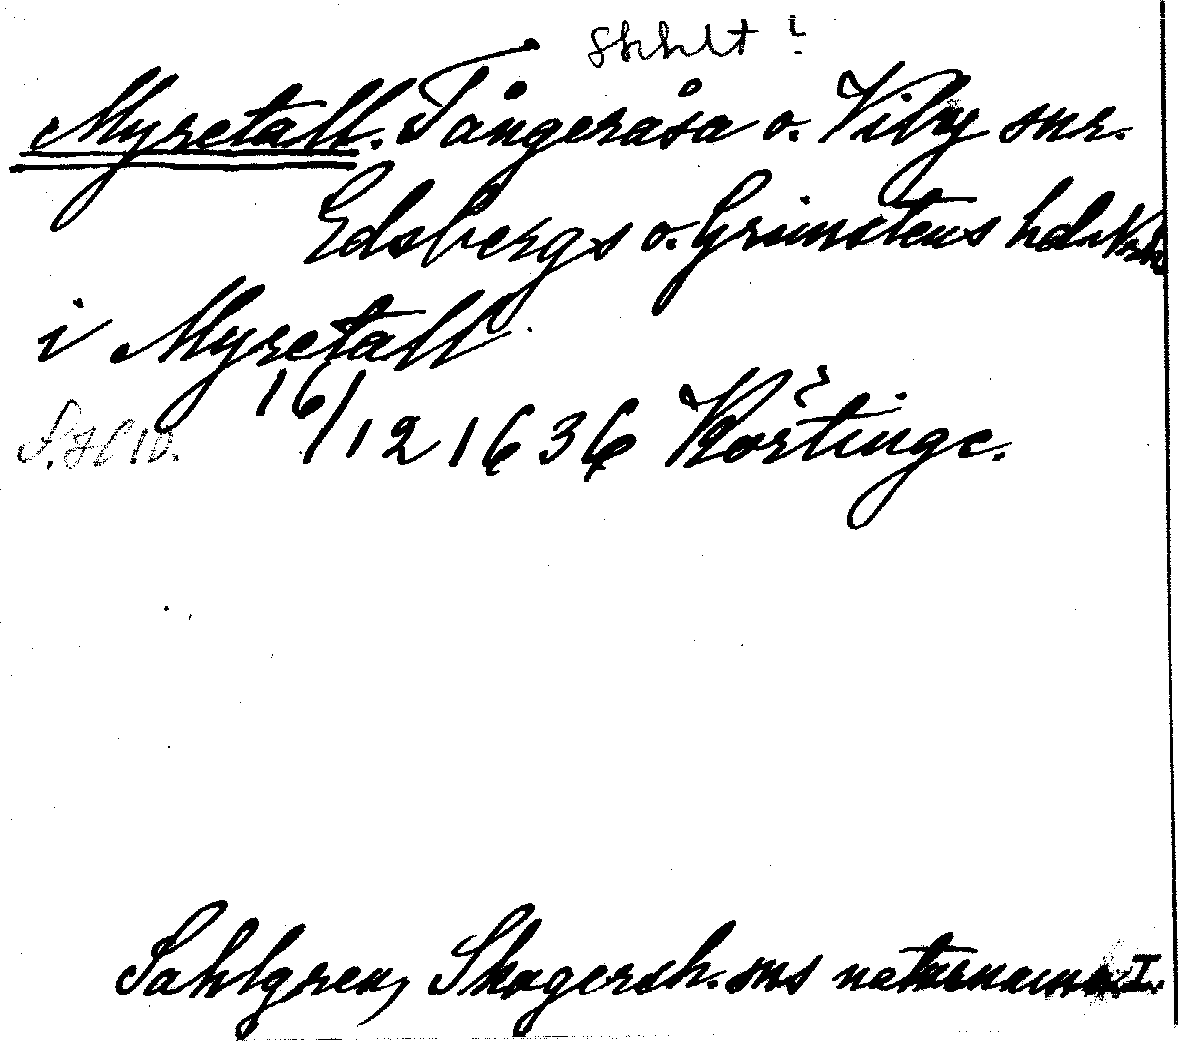 Myretall. Tångeråsa o. Viby snr.
Edsbergs o. Grimstens hd. Nrke
i Myretall
16/12 1636 Körtinge.
Sahlgren, Skagersh. sns naturnamn I.